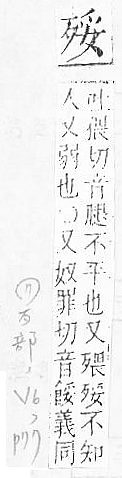 㛂
吐猥切音腿不平也又㱬㛂不知
人又弱也又奴罪切音餒義同
歹部
V6
P77